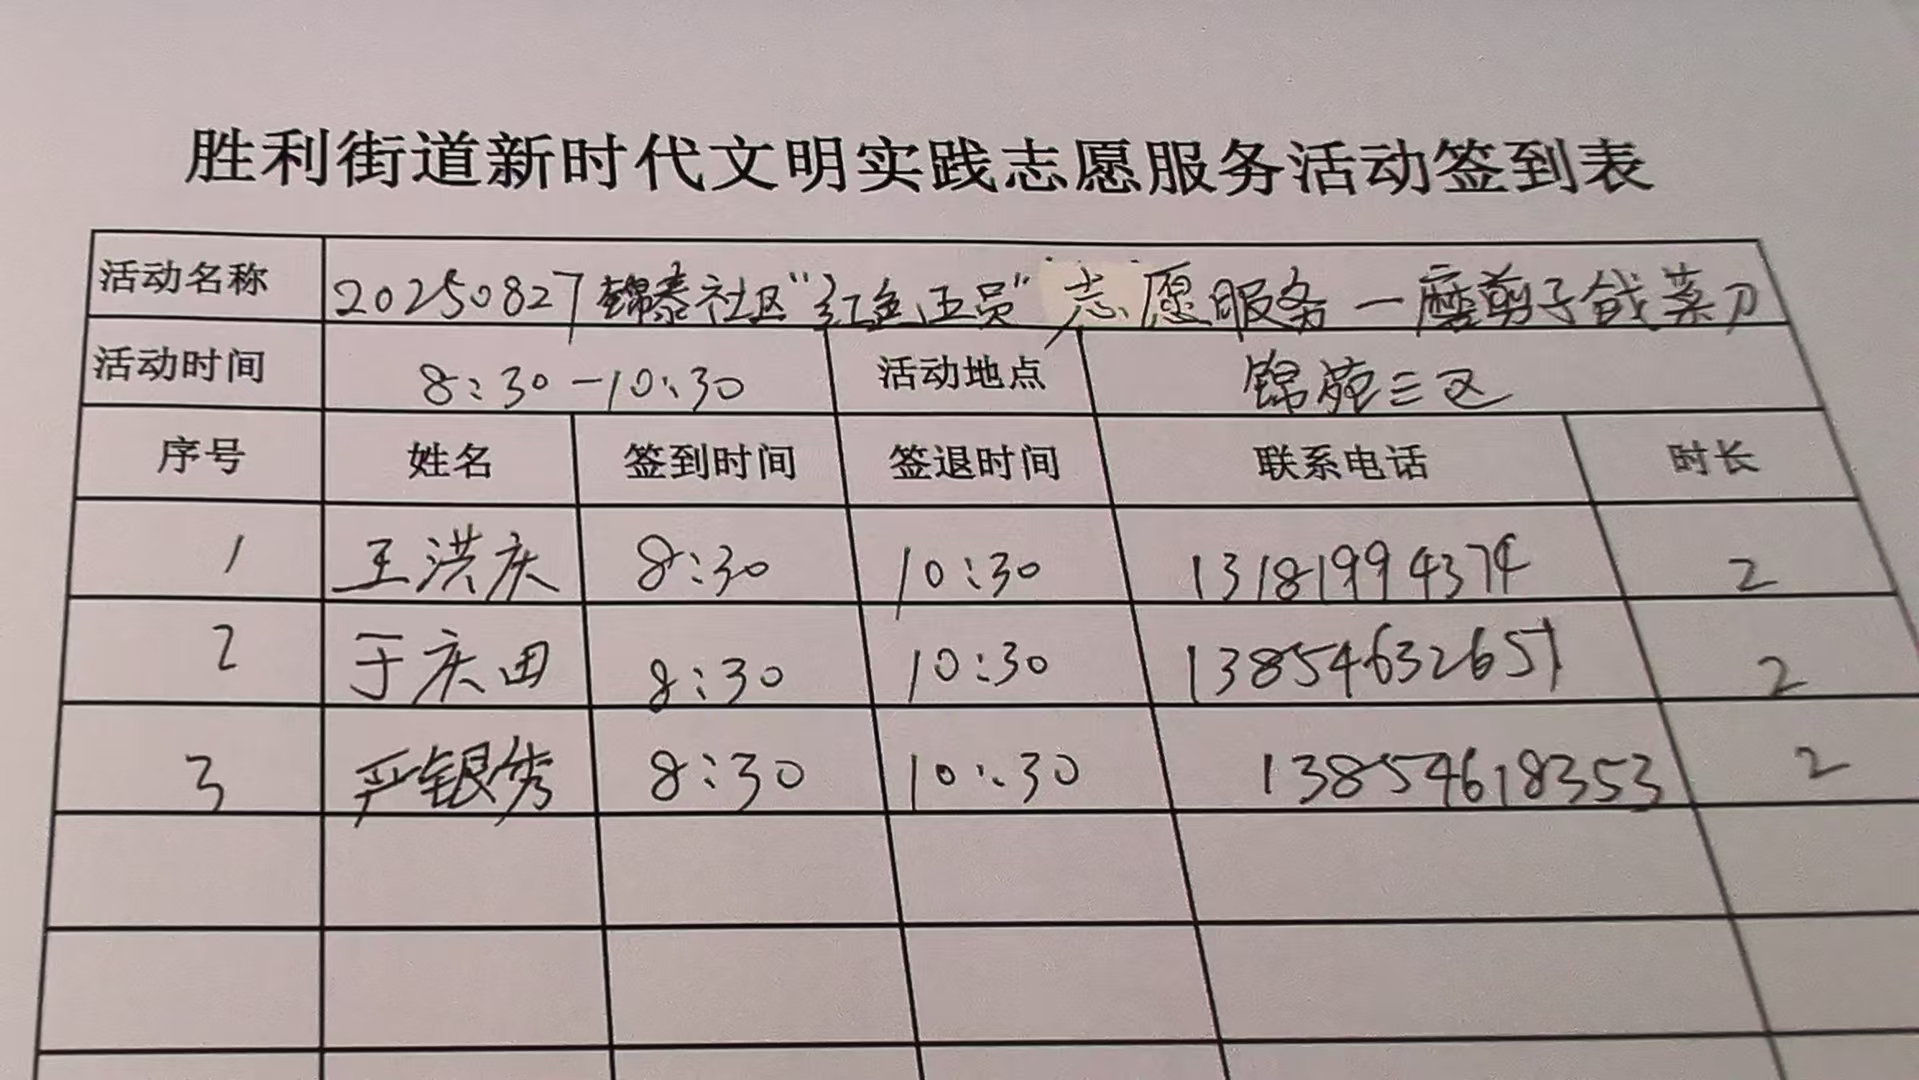 胜利街道新时代文明实践志愿服务活动签到表
活动名称 20250827锦泰社区“红色五员”志愿服务一磨剪子戗菜刀
活动时间 8:30-10:30 活动地点 锦苑三区
序号 姓名 签到时间 签退时间 联系电话 时长
1 王洪庆 8:30 10:30 13181994374 2
2 于庆田 8:30 10:30 13854632651 2
3 严银秀 8:30 10:30 13854618353 2